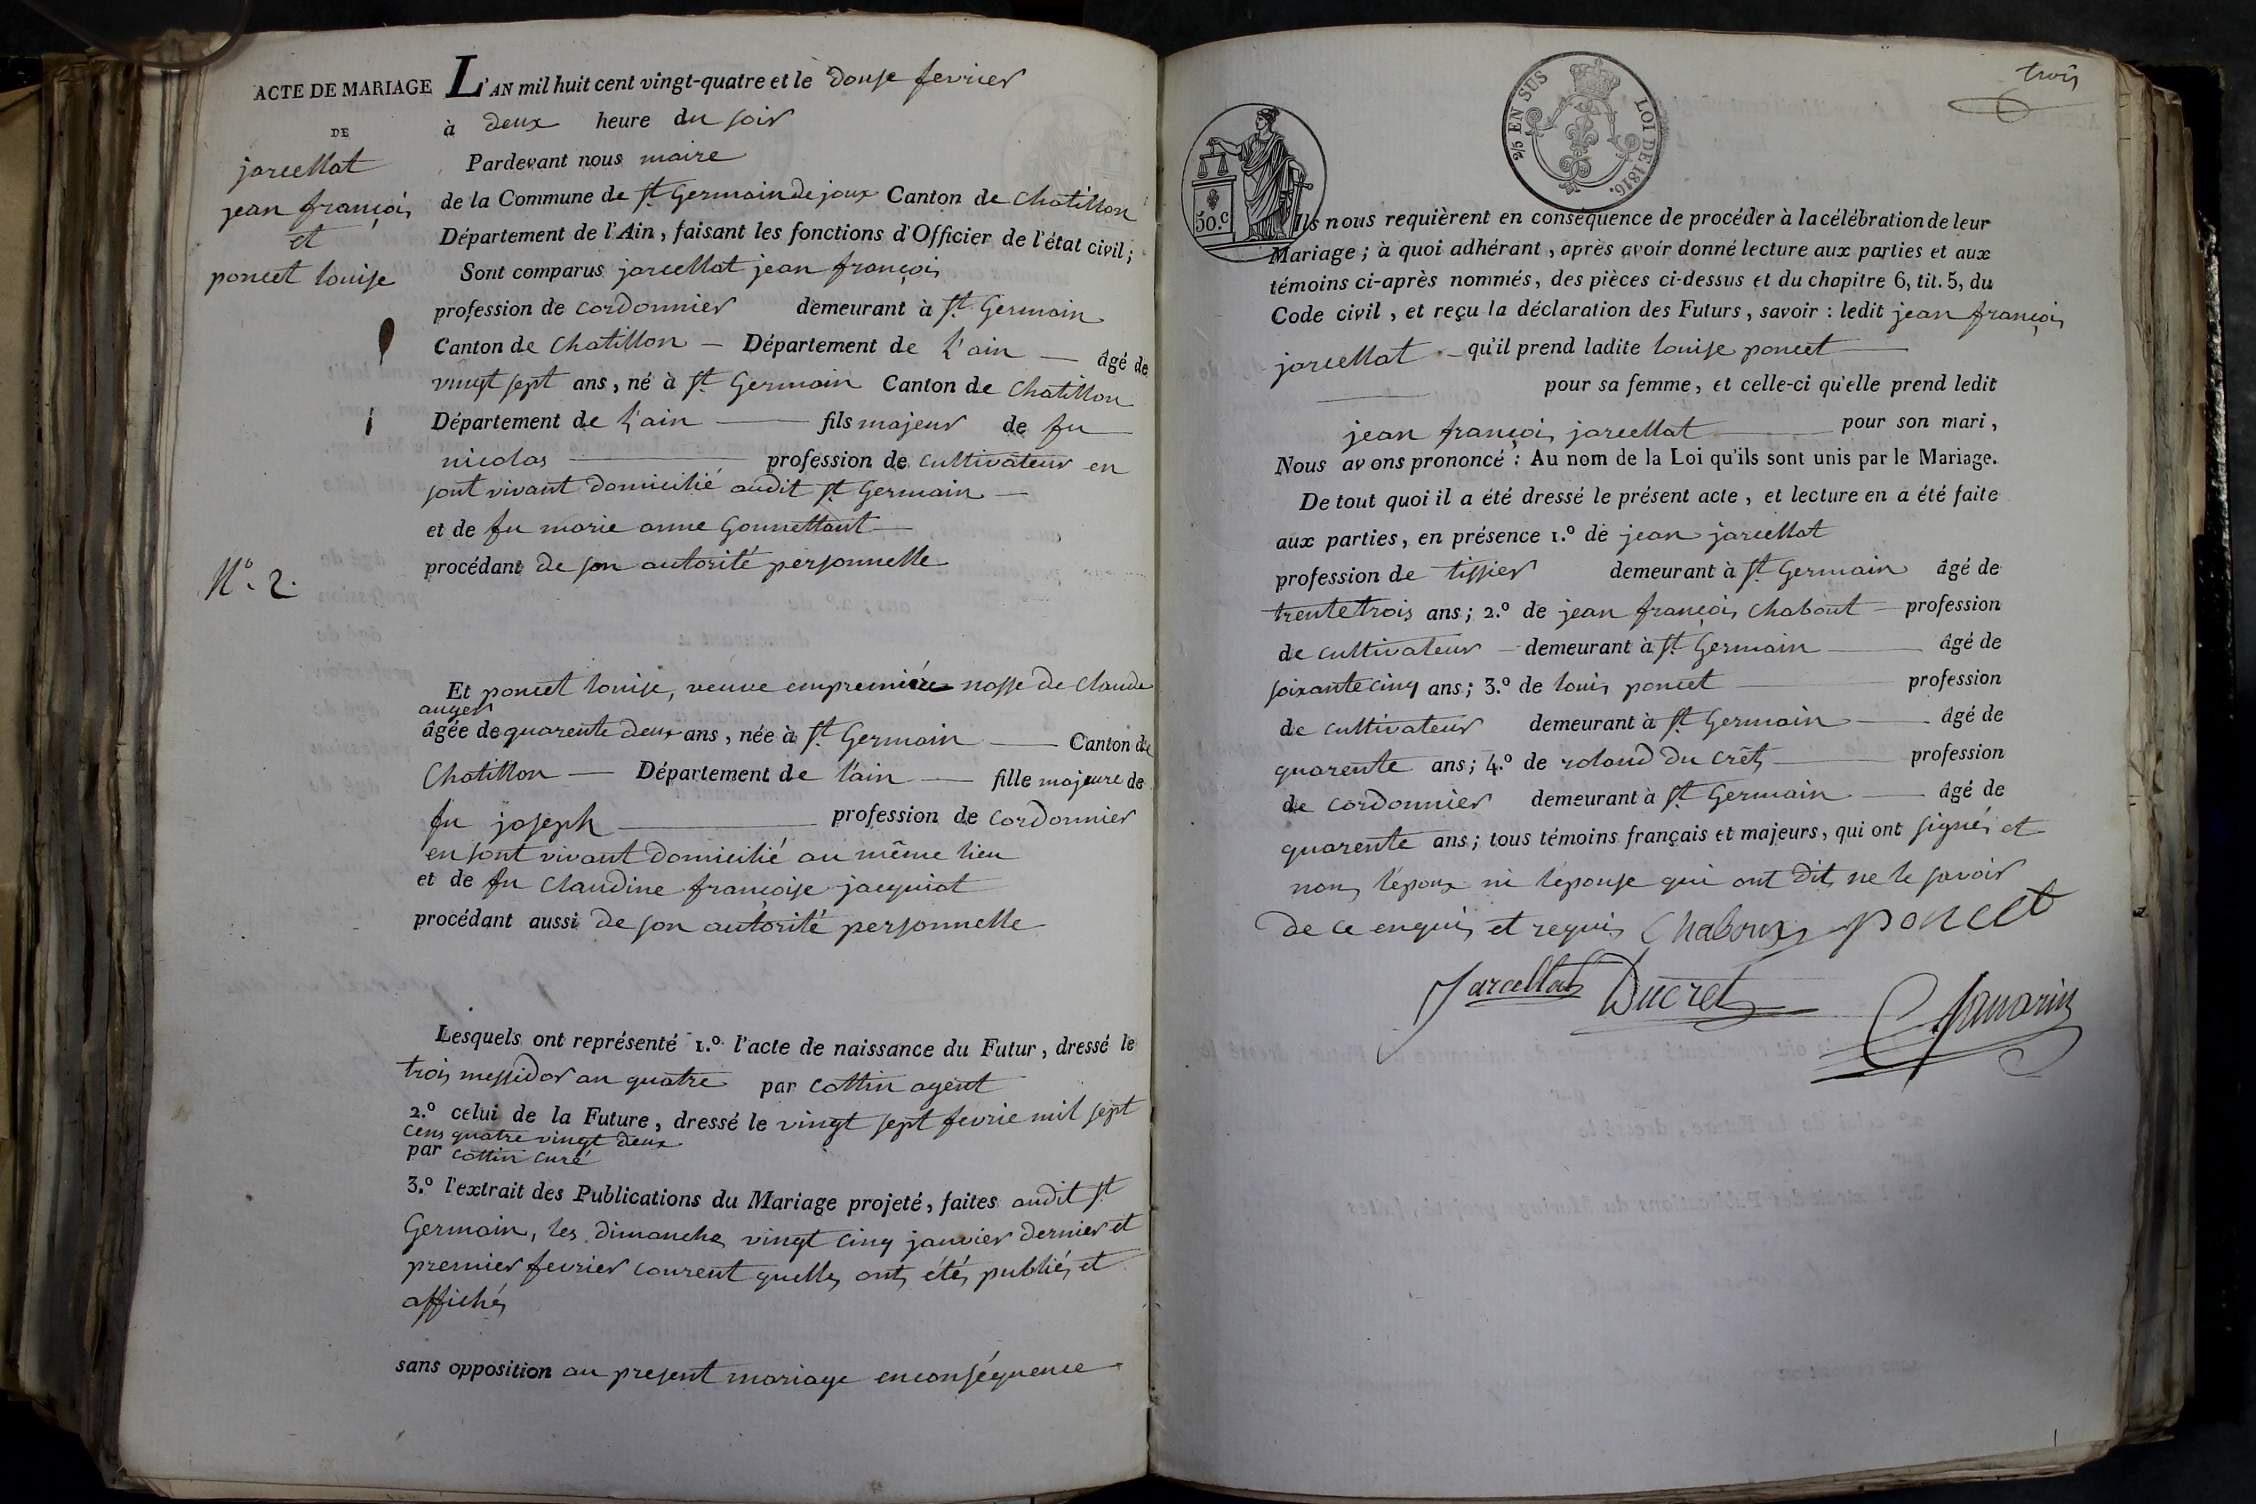 ACTE DE MARIAGE
DE
jarcellat
jean françois
et
poncet louise
N.º 2.
L'AN mil huit cent vingt-quatre et le douse fevrier
à deux heure du soir
Pardevant nous maire
de la Commune de St Germain de joux Canton de Chatillon
Département de l'Ain, faisant les fonctions d'Officier de l'état civil;
Sont comparus jarcellat jean françois
profession de cordonnier demeurant à St Germain
Canton de Chatillon — Département de L'ain — âgé de
vingt sept ans, né à St Germain Canton de Chatillon
Département de L'ain — fils majeur de fu
nicolas — profession de cultivateur en
sont vivant domicilié audit St Germain —
et de fu marie anne Gonnettant —
procédant de son autorité personnelle
Et poncet louise, veuve empremiére nosse de Claude
auger
âgée de quarente deux ans, née à St Germain — Canton de
Chatillon — Département de l'ain — fille majeure de
fu joseph — profession de cordonnier
en sont vivant domicilié au même lieu
et de fu Claudine françoise jacquiot
procédant aussi de son autorité personnelle
Lesquels ont représenté 1.º l'acte de naissance du Futur, dressé le
trois messidor an quatre par Cottin agent
2.º celui de la Future, dressé le vingt sept fevrie mil sept
cens quatre vingt deux
par Cottin curé
3.º l'extrait des Publications du Mariage projeté, faites audit St
Germain, les dimanches vingt cinq janvier dernier et
premier fevrier courent quelles onts étés publiés et
affichés
sans opposition au present mariage enconséquence
trois
2/5 EN SUS LOI DE 1816.
50.c
Ils nous requièrent en conséquence de procéder à la célébration de leur
Mariage; à quoi adhérant, après avoir donné lecture aux parties et aux
témoins ci-après nommés, des pièces ci-dessus et du chapitre 6, tit. 5, du
Code civil, et reçu la déclaration des Futurs, savoir: ledit jean françois
jarcellat — qu'il prend ladite louise poncet —
— pour sa femme, et celle-ci qu'elle prend ledit
jean françois jarcellat — pour son mari,
Nous avons prononcé: Au nom de la Loi qu'ils sont unis par le Mariage.
De tout quoi il a été dressé le présent acte, et lecture en a été faite
aux parties, en présence 1.º de jean jarcellat
profession de tissier demeurant à St Germain âgé de
trente trois ans; 2.º de jean françois Chabout — profession
de cultivateur — demeurant à St Germain — âgé de
soixante cinq ans; 3.º de louis poncet — profession
de cultivateur demeurant à St Germain — âgé de
quarente ans; 4.º de roland du crêt — profession
de cordonnier demeurant à St Germain — âgé de
quarente ans; tous témoins français et majeurs, qui ont signés et
non l'époux ni l'epouse qui ont dits ne le savoir
de ce enquis et requis Chaboux poncet
Jarcellat Ducret